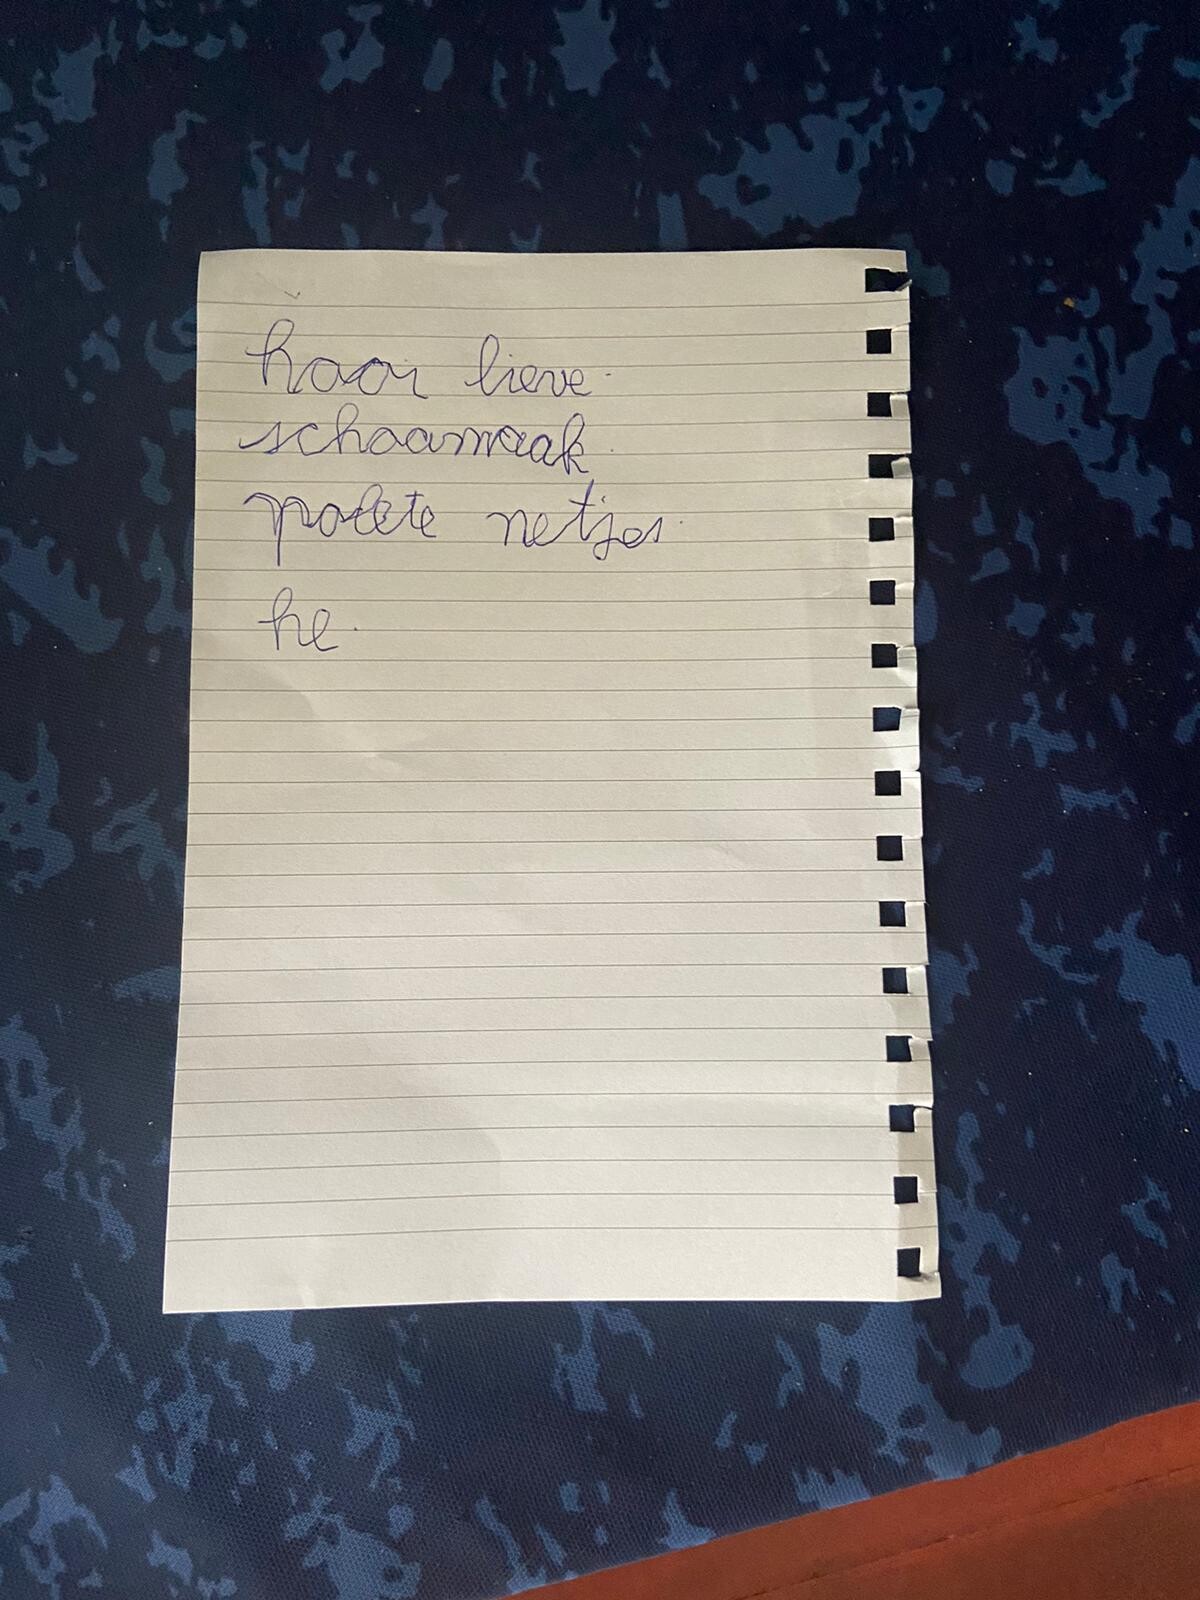 haai lieve
schoamaak
polete netjes
he.